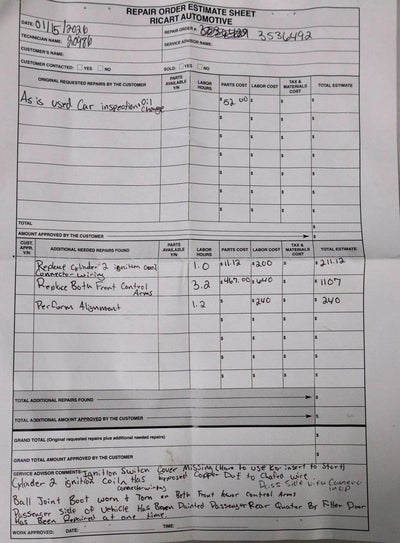 REPAIR ORDER ESTIMATE SHEET
RICART AUTOMOTIVE
DATE: 01/15/2026
REPAIR ORDER #: 3536492
TECHNICIAN NAME:
SERVICE ADVISOR NAME:
CUSTOMER'S NAME:
CUSTOMER CONTACTED: YES NO SOLD: YES NO
ORIGINAL REQUESTED REPAIRS BY THE CUSTOMER PARTS AVAILABLE Y/N LABOR HOURS PARTS COST LABOR COST TAX & MATERIALS COST TOTAL ESTIMATE
As is used Car inspection oil change $52.00 $ $ $
$ $ $ $
$ $ $ $
$ $ $ $
$ $ $ $
$ $ $ $
TOTAL $
AMOUNT APPROVED BY THE CUSTOMER $
CUST. APPR. Y/N ADDITIONAL NEEDED REPAIRS FOUND PARTS AVAILABLE Y/N LABOR HOURS PARTS COST LABOR COST TAX & MATERIALS COST TOTAL ESTIMATE
Replace Cylinder 2 ignition coil 1.0 $11.12 $200 $ $211.12
connector wiring
Replace Both Front Control 3.2 $467.00 $640 $ $1107
Arms
Perform Alignment 1.2 $ $240 $ $240
$ $ $ $
$ $ $ $
$ $ $ $
TOTAL ADDITIONAL REPAIRS FOUND $
TOTAL ADDITIONAL AMOUNT APPROVED BY THE CUSTOMER $
GRAND TOTAL (Original requested repairs plus additional needed repairs) $
GRAND TOTAL AMOUNT APPROVED BY THE CUSTOMER $
SERVICE ADVISOR COMMENTS: Ignition Switch Cover Missing (Have to use Key insert to Start)
Cylinder 2 ignition Coil Has Exposed Copper Due to Chafed wire
connector wiring Pass Side View Camera
inop
Ball Joint Boot worn & Torn on Both Front lower Control Arms
Passenger Side of Vehicle Has Been Painted Passenger Rear Quarter By Filler Door
Has Been Repaired at one time
WORK APPROVED: DATE: TIME: